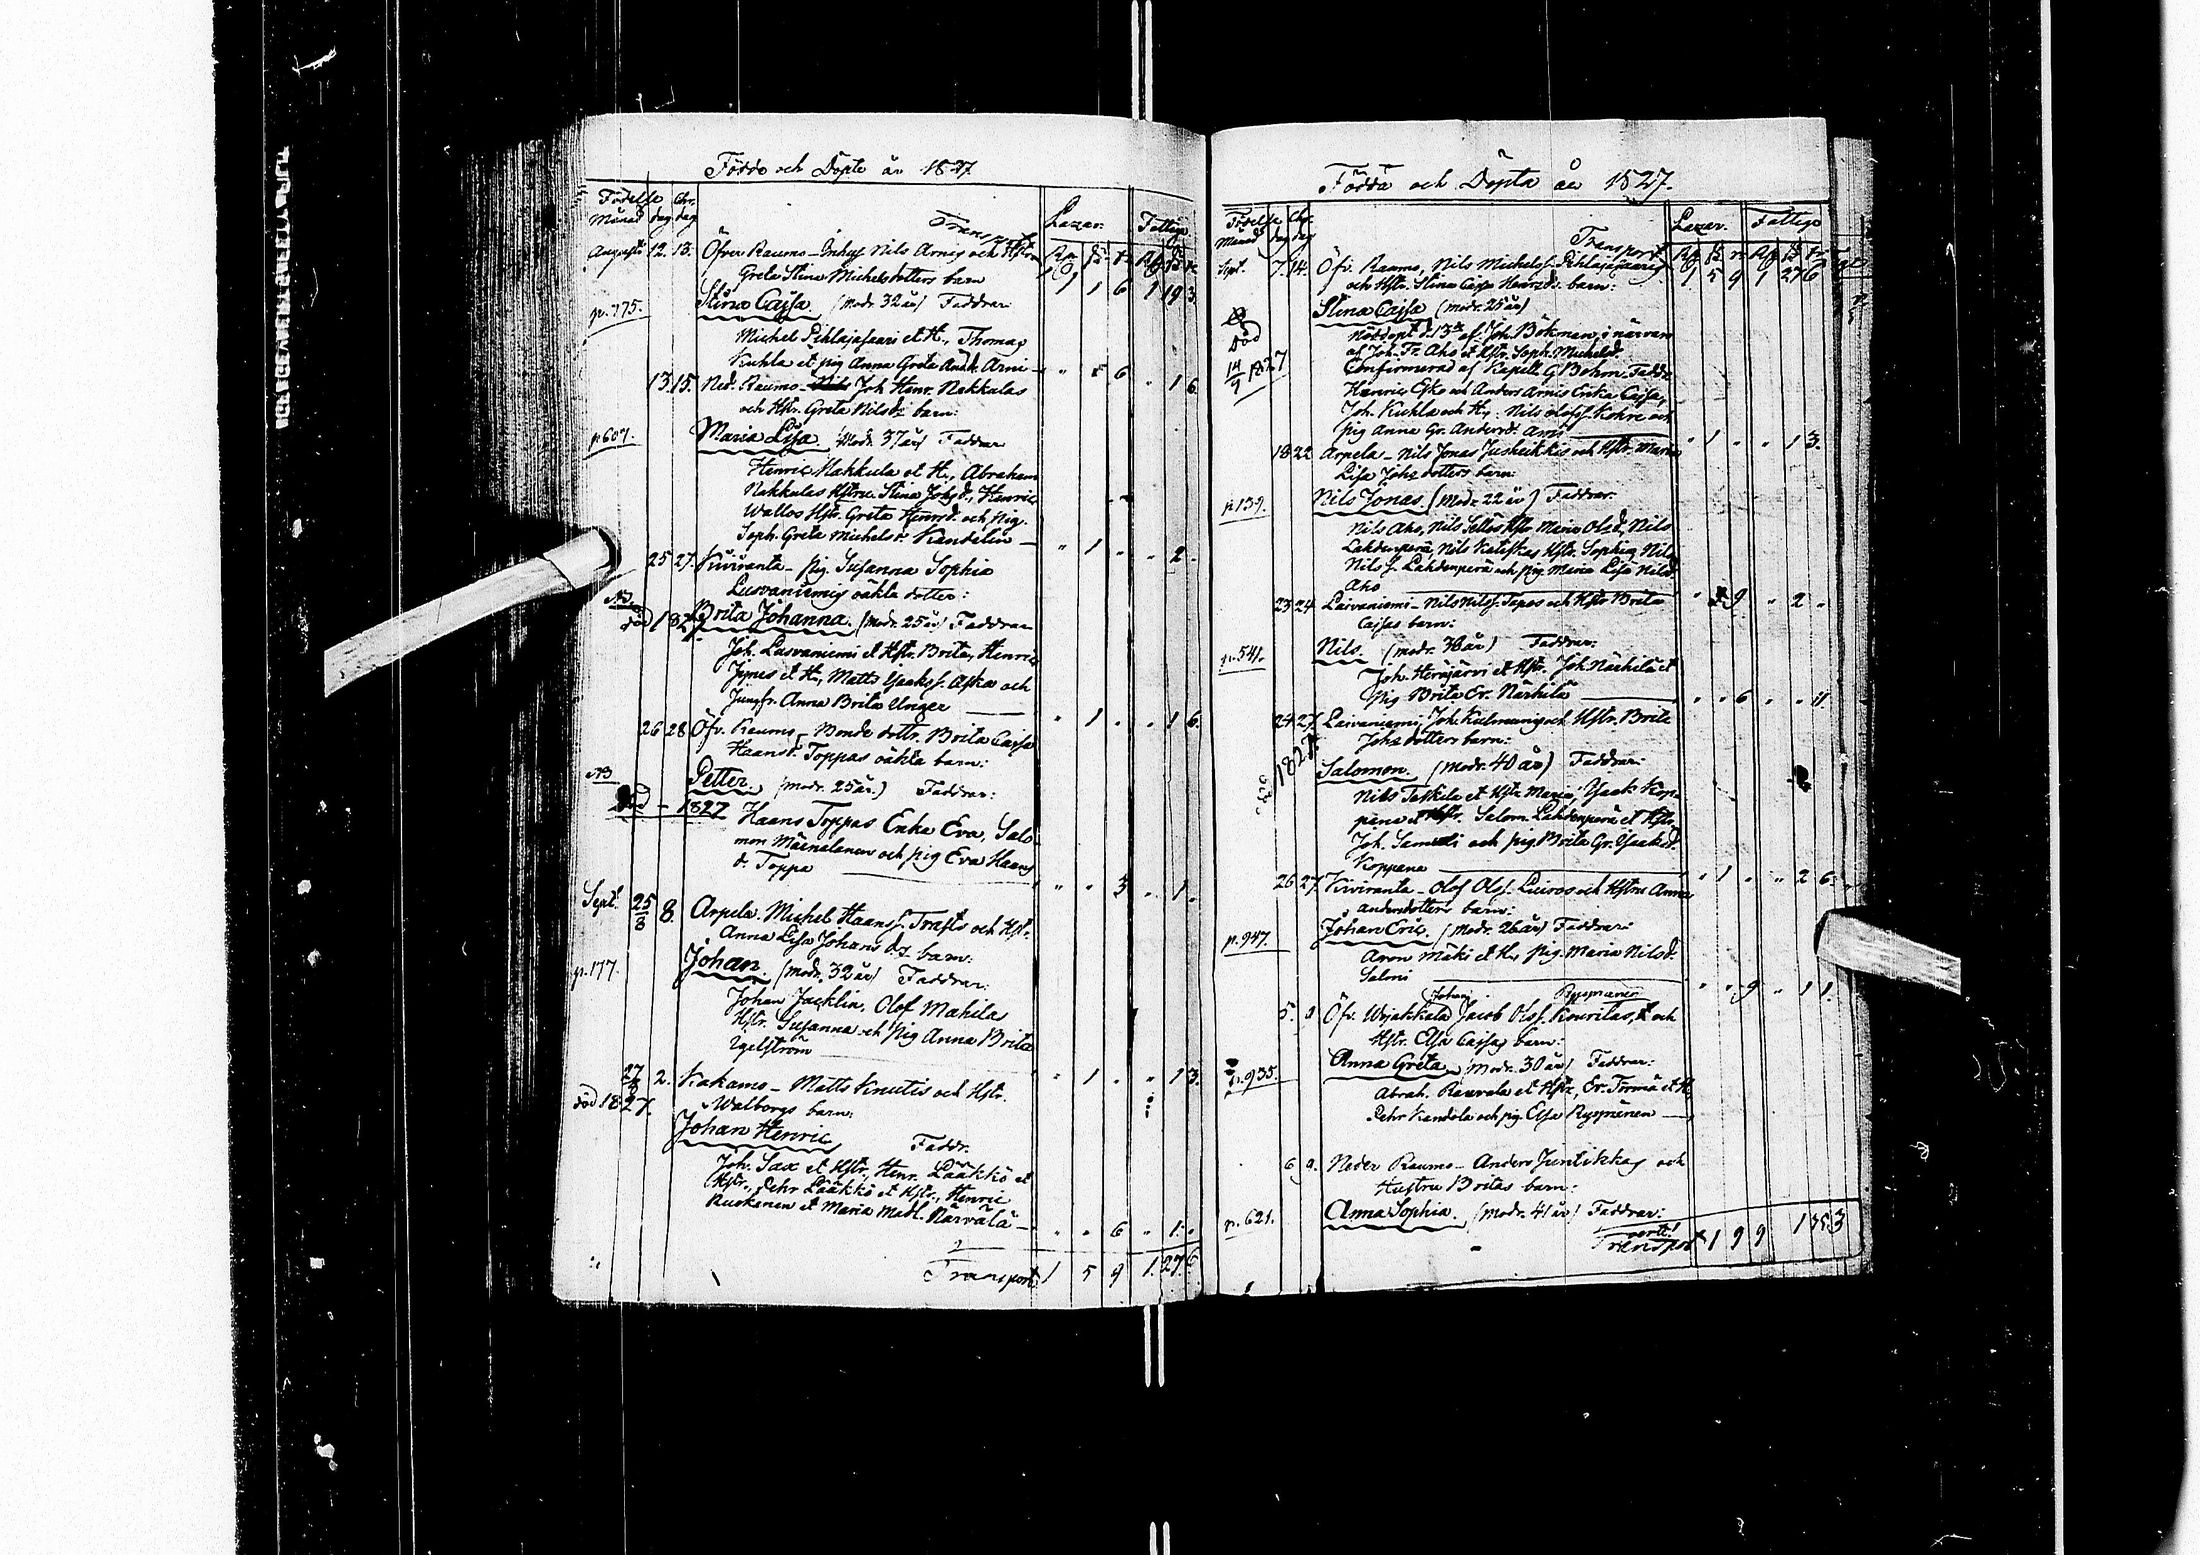 Födde och Döpte år 1827
Födelse Chr.
Månad dag dag
Lazar. Fattige.
Transport
Augusti 12. 13. Öfver Raumo - Inhys Nils Arnis och Hstr
Greta Stina Michelsdotters barn
1 1 6 1 19 3.
p. 775. Stina Cajsa. (modr. 32 år) Faddrar:
Michel Pihlajasaari et H., Thomas
Kuhla et pig Anna Greta Andr. Arni
" " 6 " 1 6
13. 15. Ned. Raumo - Joh Henr. Nakkulas
och Hstr. Greta Nilsdr barn:
p 607. Maria Lisa. (Modr. 37 år) Faddrar
Henric Nakkula et H., Abraham
Nakkulas Hstru Stina Johsd., Henric
Wallos Hstr. Greta Henrsd. och pig.
Soph. Greta Michelsdr Kandelin
" 1 " " 2 "
25 27. Kiviranta - pig. Susanna Sophia
Lusvaniemis oäkta dotter:
NB
död 1827. Brita Johanna. (modr. 25 år) Faddrar
Joh. Lasvaniemi et Hstr. Brita, Henric
et H., Matts Isaakss. och
Jungfr. Anna Brita Unger
" 1 " " 1 6.
26 28 Öfv. Raumo - Bonde dottr. Brita Cajsa
Haansd. Toppas oäkta barn:
NB
Petter. (modr. 25 år.) Faddrar:
död - 1827 Haans Toppas Enka Eva, Salo-
mon Mäenalanen och pig Eva Haans
d. Toppa
" " 3 " 1.
Sept. 25/8 8 Arpela. Michel Haanss. Trasts och Hstr.
Anna Lisa Johans drs barn:
p. 177. Johan. (modr. 32 år) Faddrar:
Johan Jacklin, Olof Mahila
Hstr. Susanna och pig Anna Brita
Ugelström
" 1 " " 1 3.
27/8 2. Kakamo - Matts Knutis och Hstr.
död 1827. Walborgs barn:
Johan Henric Faddr.
Joh. Sax et Hstr., Henr. Lääkkö et
Hstr., Pehr Lääkkö et Hstr., Henric
Ruokanen et Maria Madl. Närvälä
" " 6 " 1. "
Transport 1 5 9 1. 27. 6
Födda och Döpta år 1827.
Födelse Chr.
Månad dag dag
Lazar. Fattige
Transport
Sept. 7. 14. Öfv. Raumo, Nils Michelss. Pihlajasaaris
och Hstr. Stina Cajsa Henrsdr. barn:
1 5 9 1 27 6
Stina Cajsa (modr. 25 år)
Död
14/9 1827
Nöddöpt d. 13de af Joh. Bökman, i närvaro
af Joh. Fr. Aho et Hstr. Soph. Michelsd.
Confirmerad af Kapell. G Bohm. Faddr
Henric Esko och Anders Arnis Enka Cajsa,
Joh. Kuhla och H., Nils Olofss. Kohre och
pig Anna Gr. Andersdr Arni
" 1 " " 1 3.
18 22 Arpela - Nils Jonas Junkeikkis och Hstr. Maria
Lisa Johsdotters barn:
p 139. Nils Jonas. (Modr. 22 år) Faddrar:
Nils Aho, Nils Sellös Hstr Maria Olsd., Nils
Lahdenperä, Nils Katiskas Hstr. Sophia, Nils
Nils s. Lahdenperä och pig Maria Lisa Nilsd.
Aho
" " 9 " 2 "
23 24 Laivaniemi - Nils Nilss. Tapos och Hstr Brita
Cajsas barn:
p. 541. Nils. (modr. 30 år) Faddrar:
Joh. Heinijärvi et Hstr. Joh. Närhilä et
pig Brita Er. Närhilä
" " 6 " " 11.
24 27. Laivaniemi Joh. Kulmunis och Hstr. Brita
Johsdotters barn:
död 1827. Salomon. (Modr. 40 år) Faddrar:
Nils Taskila et Hstr. Maria, Isaak Kop-
pana et Hstr. Salom. Lahdenperä et Hstr.
Joh. Samuli och pig Brita Gr. Isaaksd.
Koppana
" 1 " " 2 6.
26 27. Kiviranta - Olof Olss. Luiros och Hstru Anna
Andersdotters barn:
p. 947. Johan Eric. (Modr. 26 år) Faddrar:
Aron Mäki et H., pig. Maria Nilsd.
Salmi
" " 9 " 1 1.
Johans Ryynänen
5. 9 Öfv. Wojakkala Jacob Olss. Kouritas, och
Hstr. Elsa Cajsas barn:
p. 935. Anna Greta. (Modr. 30 år) Faddrar:
Abrah. Rauvala et Hstr., Er. Törmä et H.,
Pehr Kandola och pig Elsa Ryynänen
6 9. Neder Raumo - Anders Juntikkas och
Hustru Britas barn:
p. 621. Anna Sophia. (Modr. 41 år) Faddrar:
vert!
Transport 1 9 9 1 35 3